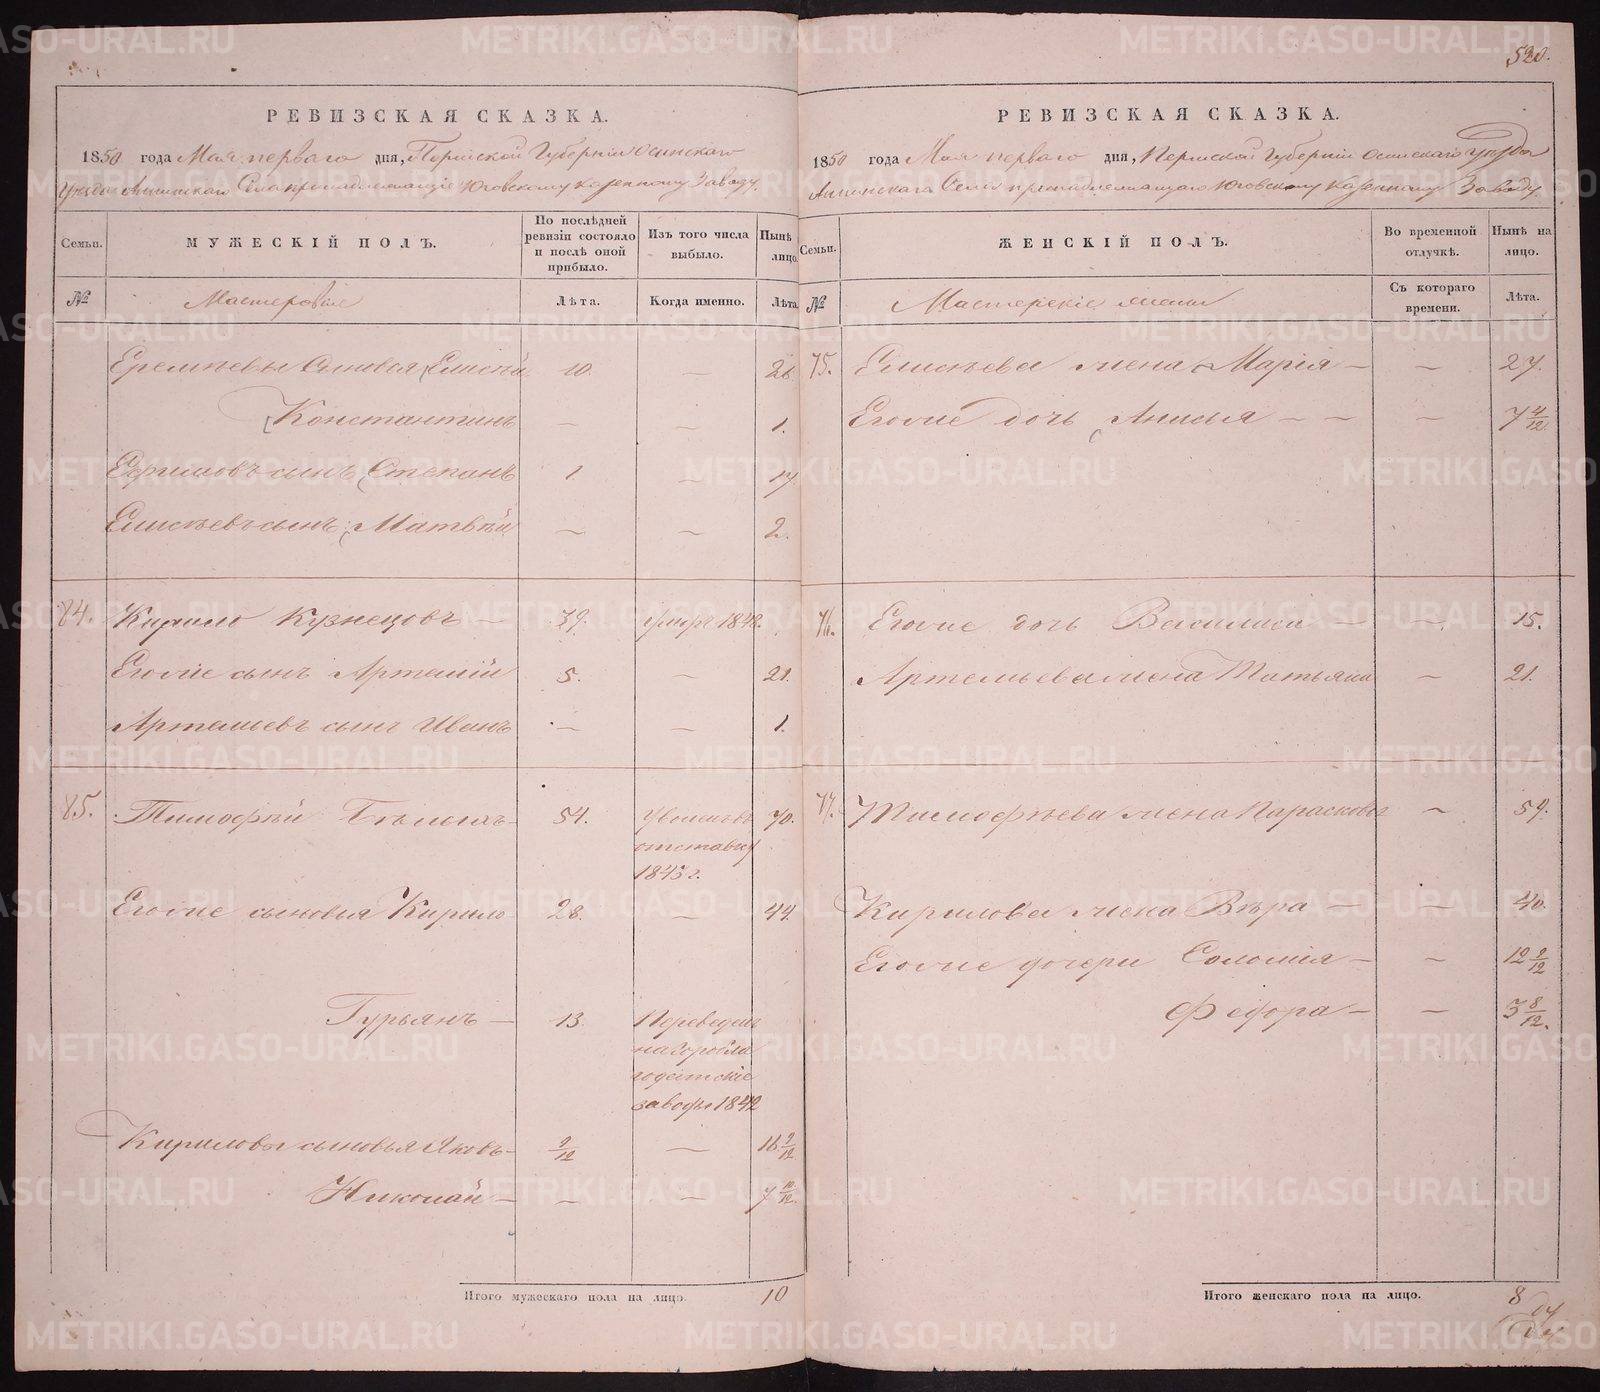 520.
РЕВИЗСКАЯ СКАЗКА.
1850 года Мая перваго дня, Пермской Губернiи Осинскаго
Уѣзда Ашапскаго Села принадлежащiе Юговскому казенному Заводу.
Семьи.
МУЖЕСКIЙ ПОЛЪ.
По послѣдней ревизiи состояло и послѣ оной прибыло.
Изъ того числа выбыло.
Нынѣ на лицо.
№
Мастеровые
Лѣта.
Когда именно.
Лѣта.
Еремѣевы сыновья, Елисѣй 10. — 26
Константинъ — — 1.
Ефимовъ сынъ Степанъ 1 — 17
Елисѣевъ сынъ Матвѣй — — 2.
84. Кирило Кузнецовъ — 39. умеръ 1842.
Егоже сынъ Артемiй 5. — 21.
Артемьевъ сынъ Иванъ — — 1.
85. Тимофѣй Бѣлыхъ 54. Уволенъ въ 70.
отставку
1845 г.
Егоже сыновья Кирило 28. — 44
Гурьянъ — 13. Переведенъ
на Горобла
годатскiе
заводы 1842
Кириловы сыновья Яковъ — 9/12 — 16 9/12
Николай — — — 7 10/12
Итого мужескаго пола на лицо. 10
РЕВИЗСКАЯ СКАЗКА.
1850 года Мая перваго дня, Пермской Губернiи Осинскаго уѣзда
Села принадлежащаго Юговскому казенному Заводу.
Семьи.
ЖЕНСКIЙ ПОЛЪ.
Во временной отлучкѣ.
Нынѣ на лицо.
№
Мастерскiе жены
Съ котораго времени.
Лѣта.
75. Елисѣева жена Марiя — — 27.
Егоже дочь Анисья — — — 7 4/12
76. Егоже дочь Василиса — — 15.
Артемьева жена Татьяна — 21.
77. Тимофѣева жена Парасковья — 59.
Кирилова жена Вѣра — — 40.
Егоже дочери Соломiя — — 12 9/12
Федора — — 3 8/12.
Итого женскаго пола на лицо. 8
METRIKI.GASO-URAL.RU